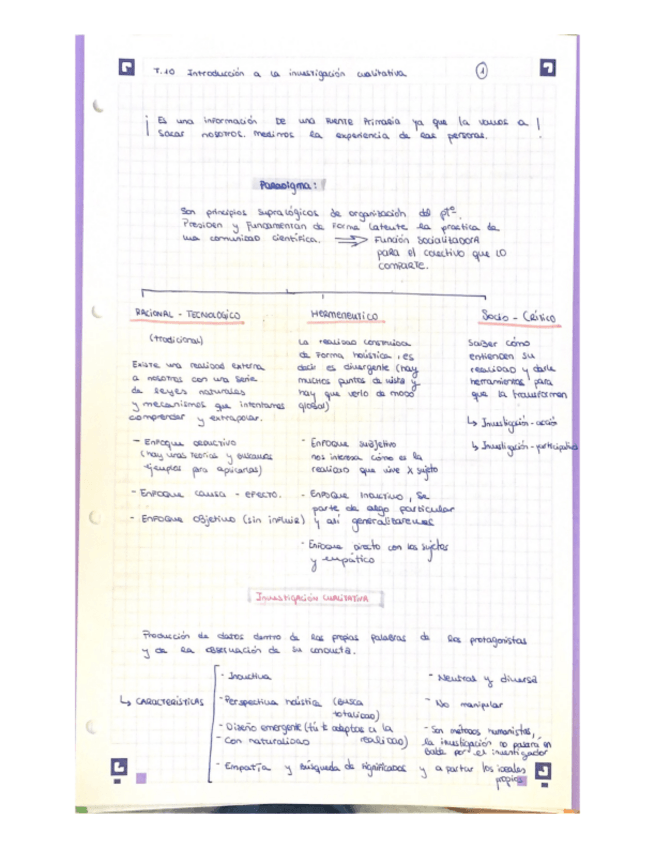 T.10 Introducción a la investigación cualitativa
1
¡ Es una información de una fuente primaria ya que la vamos a !
sacar nosotros. Medimos la experiencia de las personas.
Paradigma:
Son principios supralógicos de organización del pto.
Presiden y fundamentan de forma latente la practica de
una comunidad científica. ⇒ Función socializadora
para el colectivo que lo
comparte.
RACIONAL - TECNOLÓGICO
(tradicional)
Existe una realidad externa
a nosotros con una serie
de leyes naturales
y mecanismos que intentamos
comprender y extrapolar.
- Enfoque deductivo
(hay unas teorías y buscamos
ejemplos para aplicarlas)
- Enfoque causa - efecto.
- Enfoque objetivo (sin influir)
HERMENEUTICO
La realidad construida
de forma holística, es
decir es divergente (hay
muchos puntos de vista y
hay que verlo de modo
global)
- Enfoque subjetivo
nos interesa cómo es la
realidad que vive x sujeto
- Enfoque inductivo, se
parte de algo particular
y así generalizaremos
- Enfoque directo con los sujetos
y empático
Socio - Crítico
Saber cómo
entienden su
realidad y darle
herramientas para
que la transformen
↳ Investigación - acción
↳ Investigación - participativa
INVESTIGACIÓN CUALITATIVA
Producción de datos dentro de las propias palabras de los protagonistas
y de la observación de su conducta.
↳ CARACTERÍSTICAS
- Inductiva
- Perspectiva holística (busca
totalidad)
- Diseño emergente (tú te adaptas a la
realidad)
- Con naturalidad
- Empatía y búsqueda de significados
- Neutral y diversa
- No manipular
- Son métodos humanistas,
la investigación no pasará en
balde por el investigador
y a partar los ideales
propios